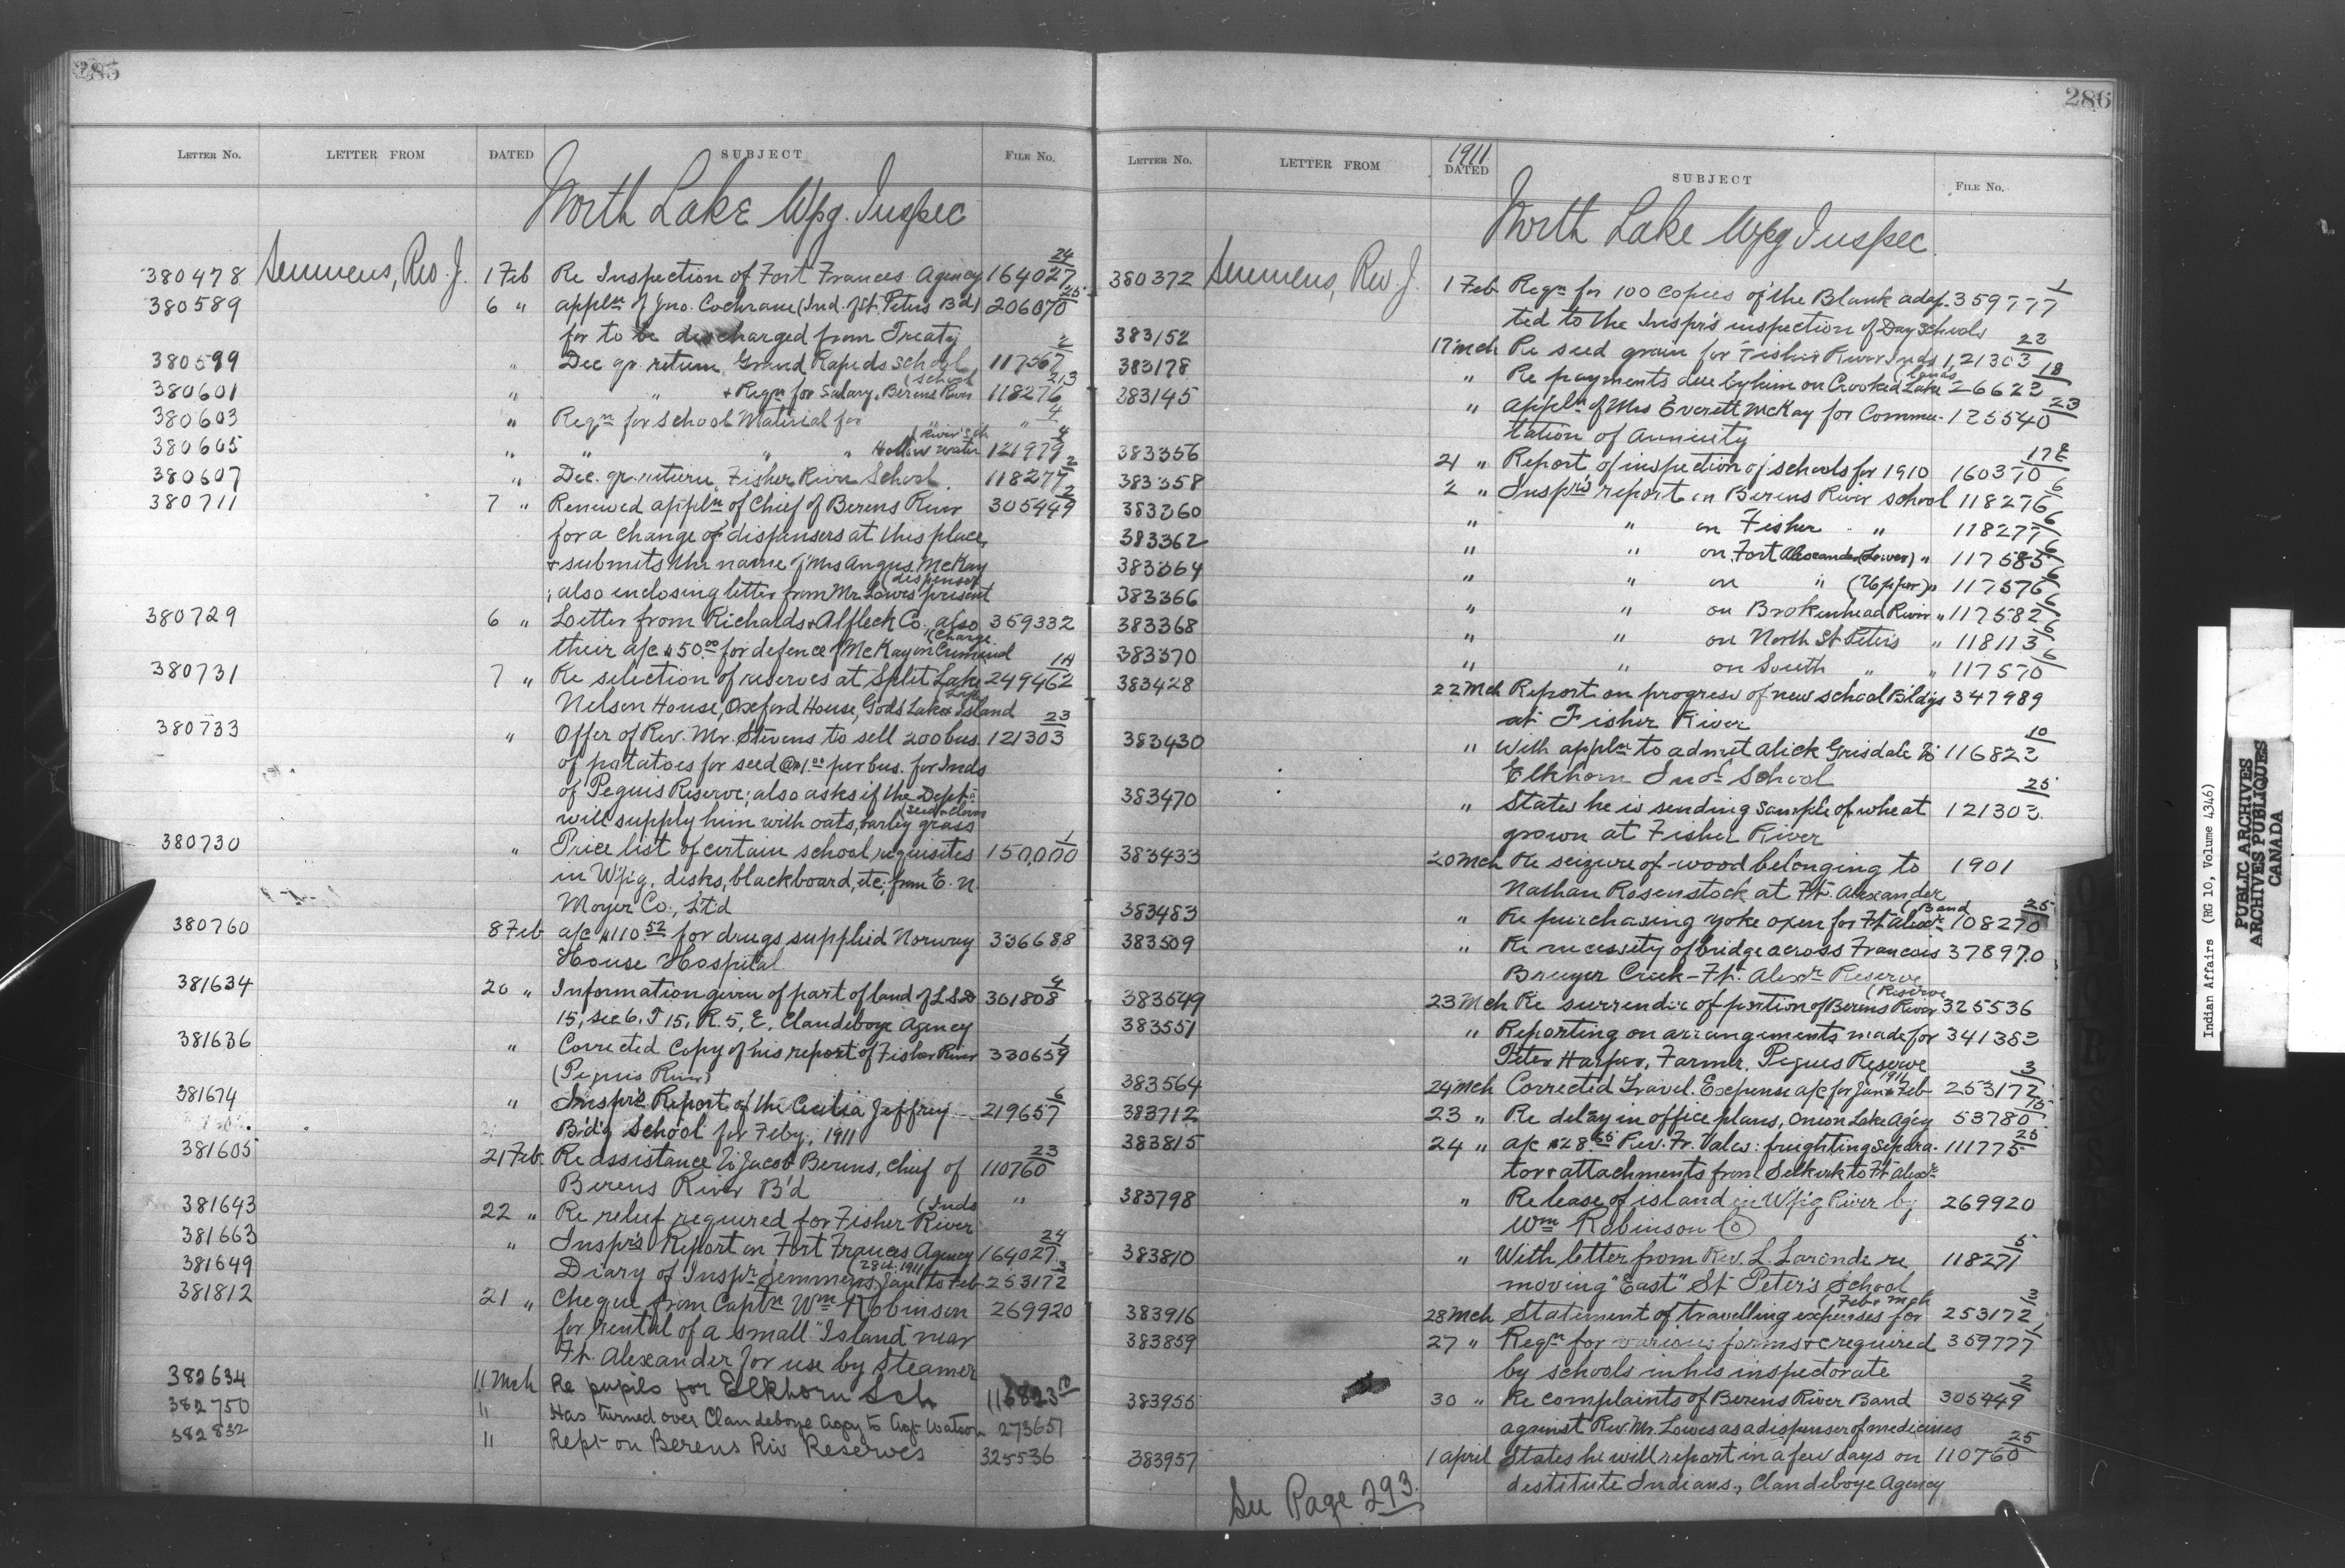 285
LETTER No. LETTER FROM DATED SUBJECT FILE No.
North Lake Wpg. Inspec
380478 Semmens, Rev. J. 1 Feb Re Inspection of Fort Frances Agency 164027 24
380589 6 " Appln of Jno. Cochrane (Ind. of St. Peters Bd) 206070 25
for to be discharged from Treaty
380599 " Dec qr. return, Grand Rapids School 117567 2
380601 " " + Reqn for Salary, Berens River (School 118276 213
380603 " Reqn for School Material for " " 4
380605 " " " " Hollow water (River Sch. 121979 4
380607 " Dec. qr. return, Fisher River School. 118277 2
380711 7 " Renewed appln of Chief of Berens River 305449 2
for a change of dispensers at this place,
& submits the name of Mrs Angus McKay
; also enclosing letter from Mr. Lowes present (dispenser
380729 6 " Letter from Richards & Affleck Co. also 359332
their a/c $50.00 for defence of McKay on Criminal (Charge.
380731 7 " Re selection of reserves at Split Lake 249462 1A
Nelson House, Oxford House, Gods Lake & Island (Lake
380733 " Offer of Rev. Mr. Stevens to sell 200 bus. 121303 23
of potatoes for seed @ $1.00 per bus. for Inds
of Peguis Reserve; also asks if the Dept.
will supply him with oats, barley grass (seed & clover
380730 " Price list of certain school requisites 150,000 1
in Wp'g, disks, blackboard, etc; from E. N.
Moyer Co., Lt'd
380760 8 Feb a/c $110.52 for drugs supplied Norway 336688
House Hospital.
381634 20 " Information given of part of land of L.S.D 301808 4
15, sec 6, T 15, R. 5, E. Clandeboye Agency
381636 " Corrected Copy of his report of Fisher River 330659 1
(Peguis River)
381674 " Inspr's Report of the Cecilia Jeffrey 219657 6
B'd'g School for Feby, 1911
381605 21 Feb. Re assistance to Jacob Berens, Chief of 110760 23
Berens River B'd
381643 22 " Re relief required for Fisher River (Inds "
381663 " Inspr's Report on Fort Frances Agency 164027 24
381649 Diary of Inspr Semmens, Jan to Feb (28th 1911 253172 3
381812 21 " Cheque from Captn Wm Robinson 269920
for rental of a small "Island near
Ft. Alexander for use by Steamer
382634 11 Mch Re pupils for Elkhorn Sch 116823 10
382750 " Has turned over Clandeboye Agcy to Agt Watson 273651
382832 11 Rept on Berens Riv Reserves 325536
286
LETTER No. LETTER FROM 1911 DATED SUBJECT FILE No.
North Lake Wpg Inspec.
380372 Semmens, Rev. J. 1 Feb Reqn for 100 copies of the Blank adap- 359777 1
ted to the Inspr's inspection of Day Schools
383152 17 Mch Re seed grain for Fisher River Inds 121303 22
383178 " Re payments due by him on Crooked Lake (lands 26623 18
383145 " Appln of Mrs Everett McKay for Commu- 125540 23
tation of Annuity
383356 21 " Report of inspection of schools for 1910 160370 17E
383358 2 " Inspr's report on Berens River school 118276 6
383360 " " on Fisher " 118277 6
383362 " " on Fort Alexander (Lower) " 117585 6
383364 " " on " (Upper) " 117576 6
383366 " " on Brokenhead River " 117582 6
383368 " " on North St. Peters " 118113 6
383370 " " on South " " 117570 6
383428 22 Mch Report on progress of new school Bldgs 347989
at Fisher River
383430 " With appln to admit Alick Grisdale to 116823 10
Elkhorn Ind. School
383470 " States he is sending sample of wheat 121303 25
grown at Fisher River
383433 20 Mch Re seizure of wood belonging to 1901
Nathan Rosenstock at Ft. Alexander
383483 " Re purchasing yoke oxen for Ft. Alexr. (Band 108270 25
383509 " Re necessity of bridge across Francois 378970
Bruyer Creek - Ft. Alexr Reserve
383549 23 Mch Re surrender of portion of Berens River (Reserve 325536
383551 " Reporting on arrangements made for 341383
Peter Harper, Farmer, Peguis Reserve
383564 24 Mch Corrected Travel. Expense a/c for Jan & Feb 1911 253172 3
383712 23 " Re delay in office plans, Onion Lake Agcy 53780 15
383815 24 " a/c $28.25 Rev. Fr. Vales: freighting Separa- 111775 25
tor & attachments from Selkirk to Ft. Alexr
383798 " Re lease of island in Wp'g River by 269920
Wm Robinson Co
383810 " With letter from Rev. L. Laronde re 118271 5
moving "East" St Peter's School
383916 28 Mch Statement of travelling expenses for (Feb & Mch 253172 3
383859 27 " Reqn for various forms &c required 359777 1
by schools in his inspectorate
383955 30 " Re complaints of Berens River Band 305449 2
against Rev. Mr. Lowes as a dispenser of medicines
383957 1 April States he will report in a few days on 110760 25
destitute Indians, Clandeboye Agency
See Page 293.
Indian Affairs (RG 10, Volume 4346)
PUBLIC ARCHIVES
ARCHIVES PUBLIQUES
CANADA